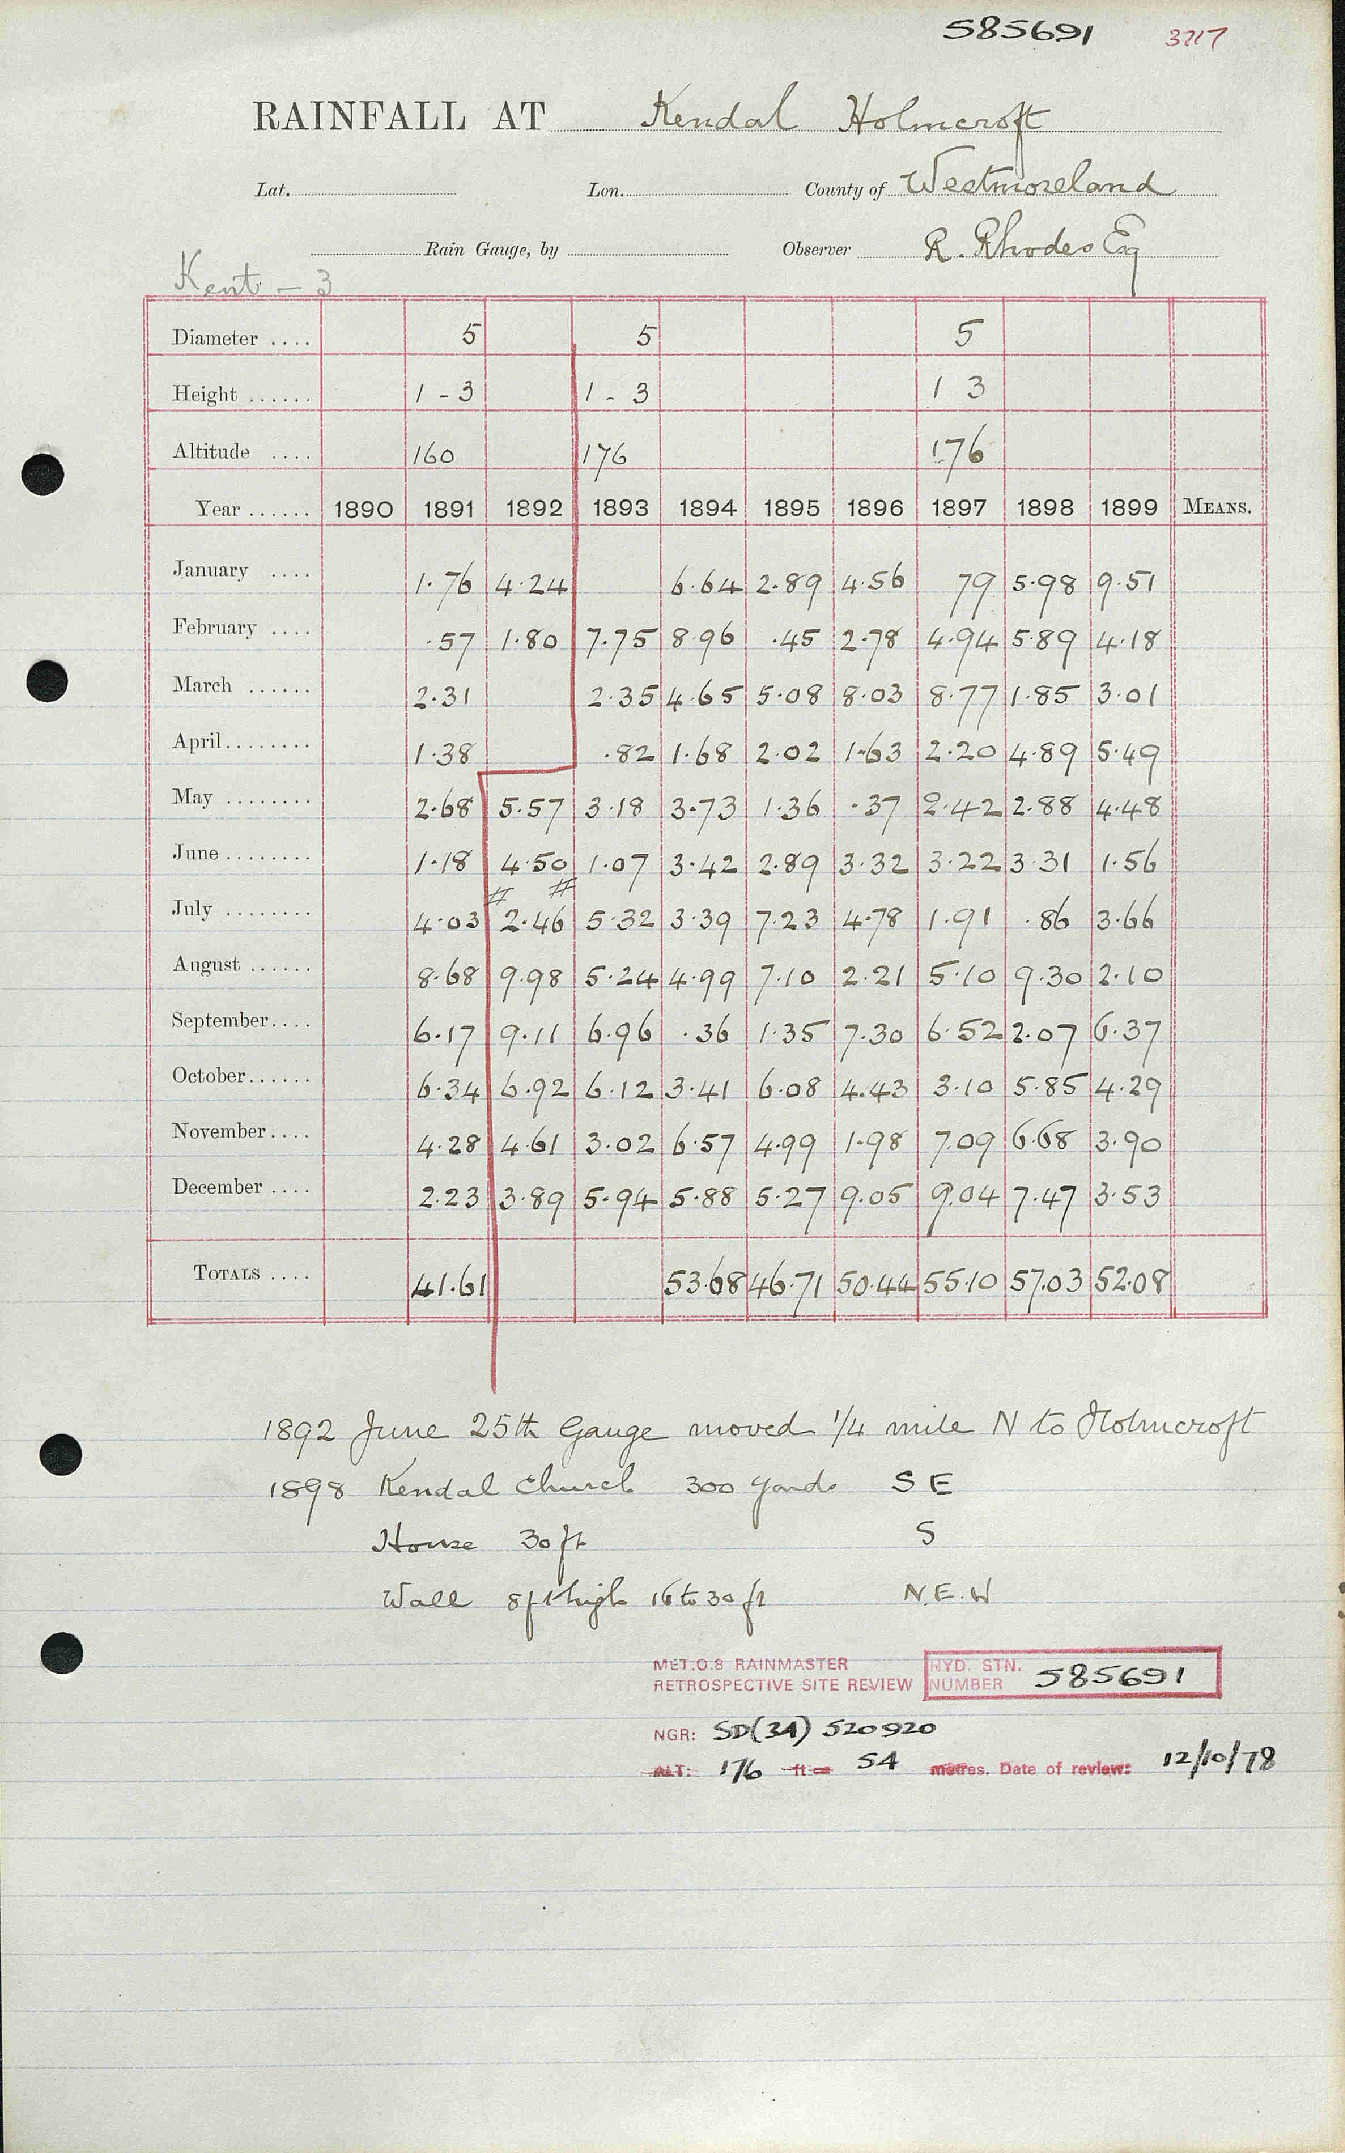 585691 3217
RAINFALL AT Kendal Holmcroft
Lat. Lon. County of Westmoreland
Rain Gauge, by Observer R. Rhodes Esq
Kent - 3
Diameter .... 5 5 5
Height ...... 1 - 3 1 - 3 1 3
Altitude .... 160 176 176
Year ...... 1890 1891 1892 1893 1894 1895 1896 1897 1898 1899 MEANS.
January .... 1.76 4.24 6.64 2.89 4.56 79 5.98 9.51
February .... .57 1.80 7.75 8.96 .45 2.78 4.94 5.89 4.18
March ...... 2.31 2.35 4.65 5.08 8.03 8.77 1.85 3.01
April........ 1.38 .82 1.68 2.02 1.63 2.20 4.89 5.49
May ........ 2.68 5.57 3.18 3.73 1.36 .37 2.42 2.88 4.48
June........ 1.18 4.50 1.07 3.42 2.89 3.32 3.22 3.31 1.56
# #
July ........ 4.03 2.46 5.32 3.39 7.23 4.78 1.91 .86 3.66
August ...... 8.68 9.98 5.24 4.99 7.10 2.21 5.10 9.30 2.10
September.... 6.17 9.11 6.96 .36 1.35 7.30 6.52 2.07 6.37
October...... 6.34 6.92 6.12 3.41 6.08 4.43 3.10 5.85 4.29
November.... 4.28 4.61 3.02 6.57 4.99 1.98 7.09 6.68 3.90
December .... 2.23 3.89 5.94 5.88 5.27 9.05 9.04 7.47 3.53
TOTALS .... 41.61 53.68 46.71 50.44 55.10 57.03 52.08
1892 June 25th Gauge moved 1/4 mile N to Holmcroft
1898 Kendal Church 300 yards S E
House 30 ft S
Wall 8ft high 16 to 30 ft N.E.W
MET.O.8 RAINMASTER HYD. STN.
RETROSPECTIVE SITE REVIEW NUMBER 585691
NGR: SD(34) 520920
ALT: 176 ft = 54 metres. Date of review: 12/10/78